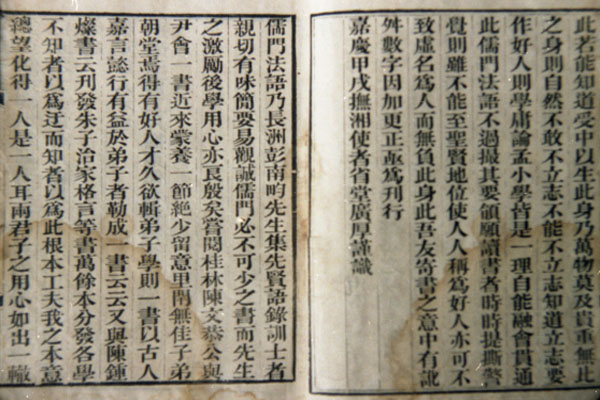 儒門法語乃長洲彭南畇先生集先賢語錄訓士者
親切有味簡要易觀誠儒門必不可少之書而先生
之激勵後學用心亦良殷矣嘗閱桂林陳文恭公與
尹會一書近來蒙養一節絶少留意里閈無佳子弟
朝堂焉得有好人才久欲輯弟子學則一書以古人
嘉言懿行有益於弟子者勒成一書云云又與陳鍾
燦書云刊發朱子治家格言等書萬餘本分發各學
不知者以爲迂而知者以爲此根本工夫我之本意
總望化得一人是一人耳兩君子之用心如出一轍
此若能知道受中以生此身乃萬物莫及貴重無比
之身則自然不敢不立志不能不立志知道立志要
作好人則學庸論孟小學皆是一理自能融會貫通
此儒門法語不過撮其要領願讀書者時時提撕警
覺則雖不能至聖賢地位使人人稱爲好人亦可不
致虛名爲人而無負此身此吾友寄書之意中有訛
舛數字因加更正亟爲刊行
嘉慶甲戌撫湘使者省堂廣厚謹識